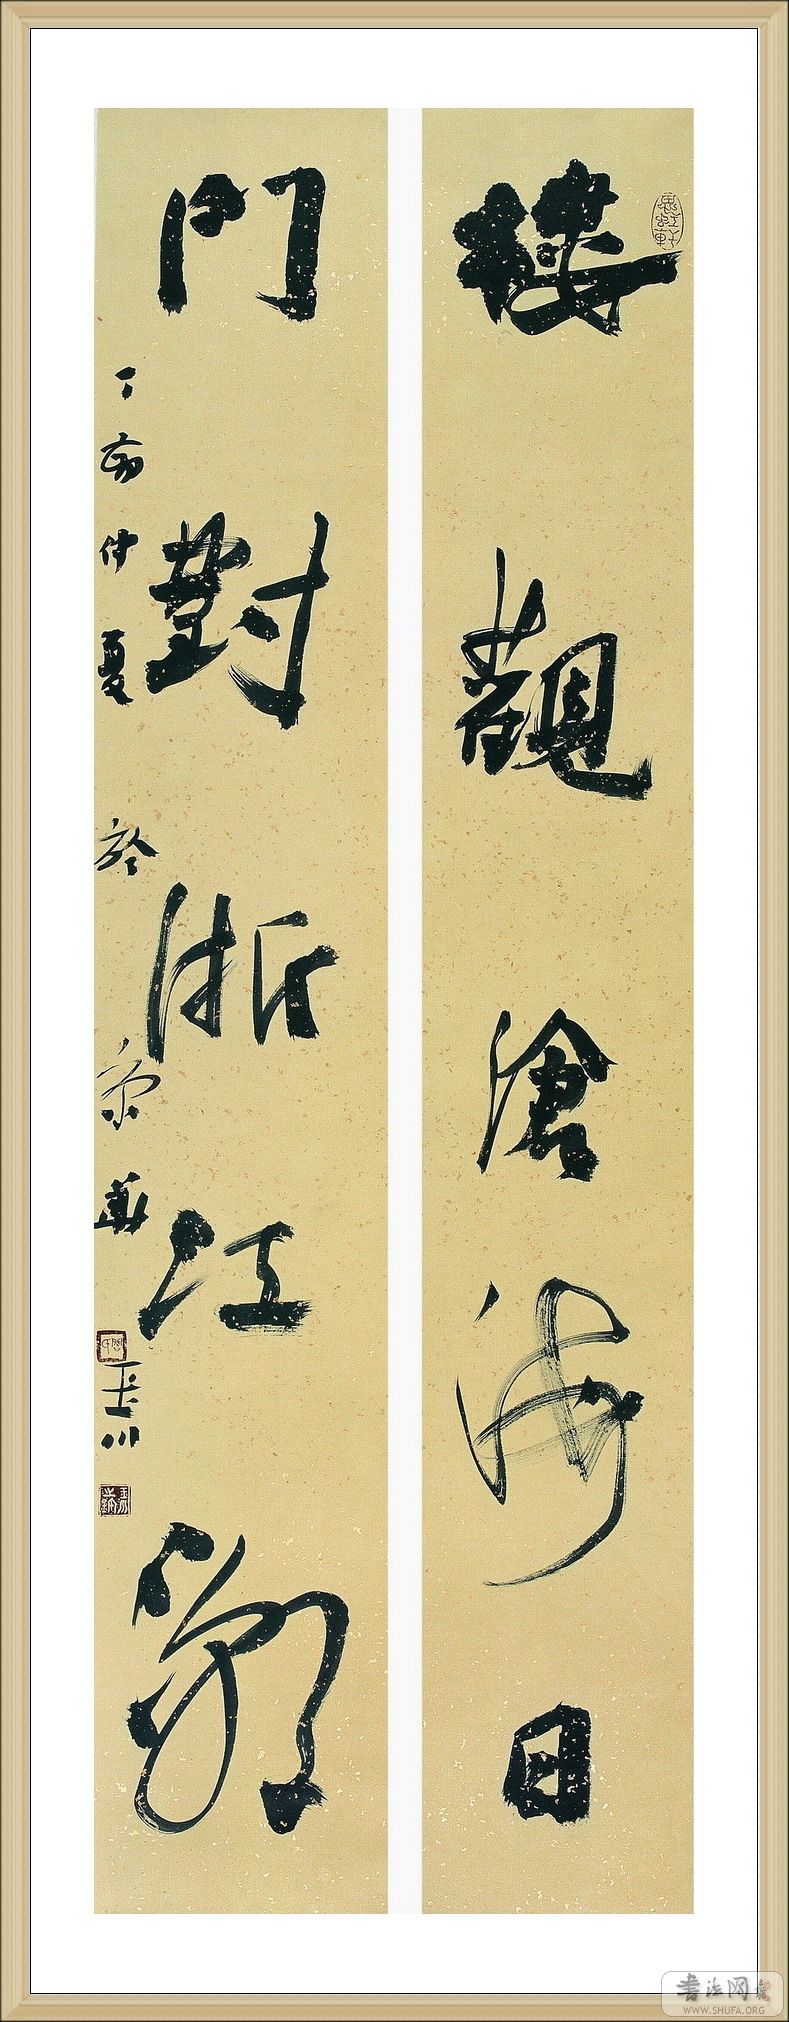 樓觀滄海日
門對浙江潮
丁亥仲夏於京華
玉川
書法网
WWW.SHUFA.ORG